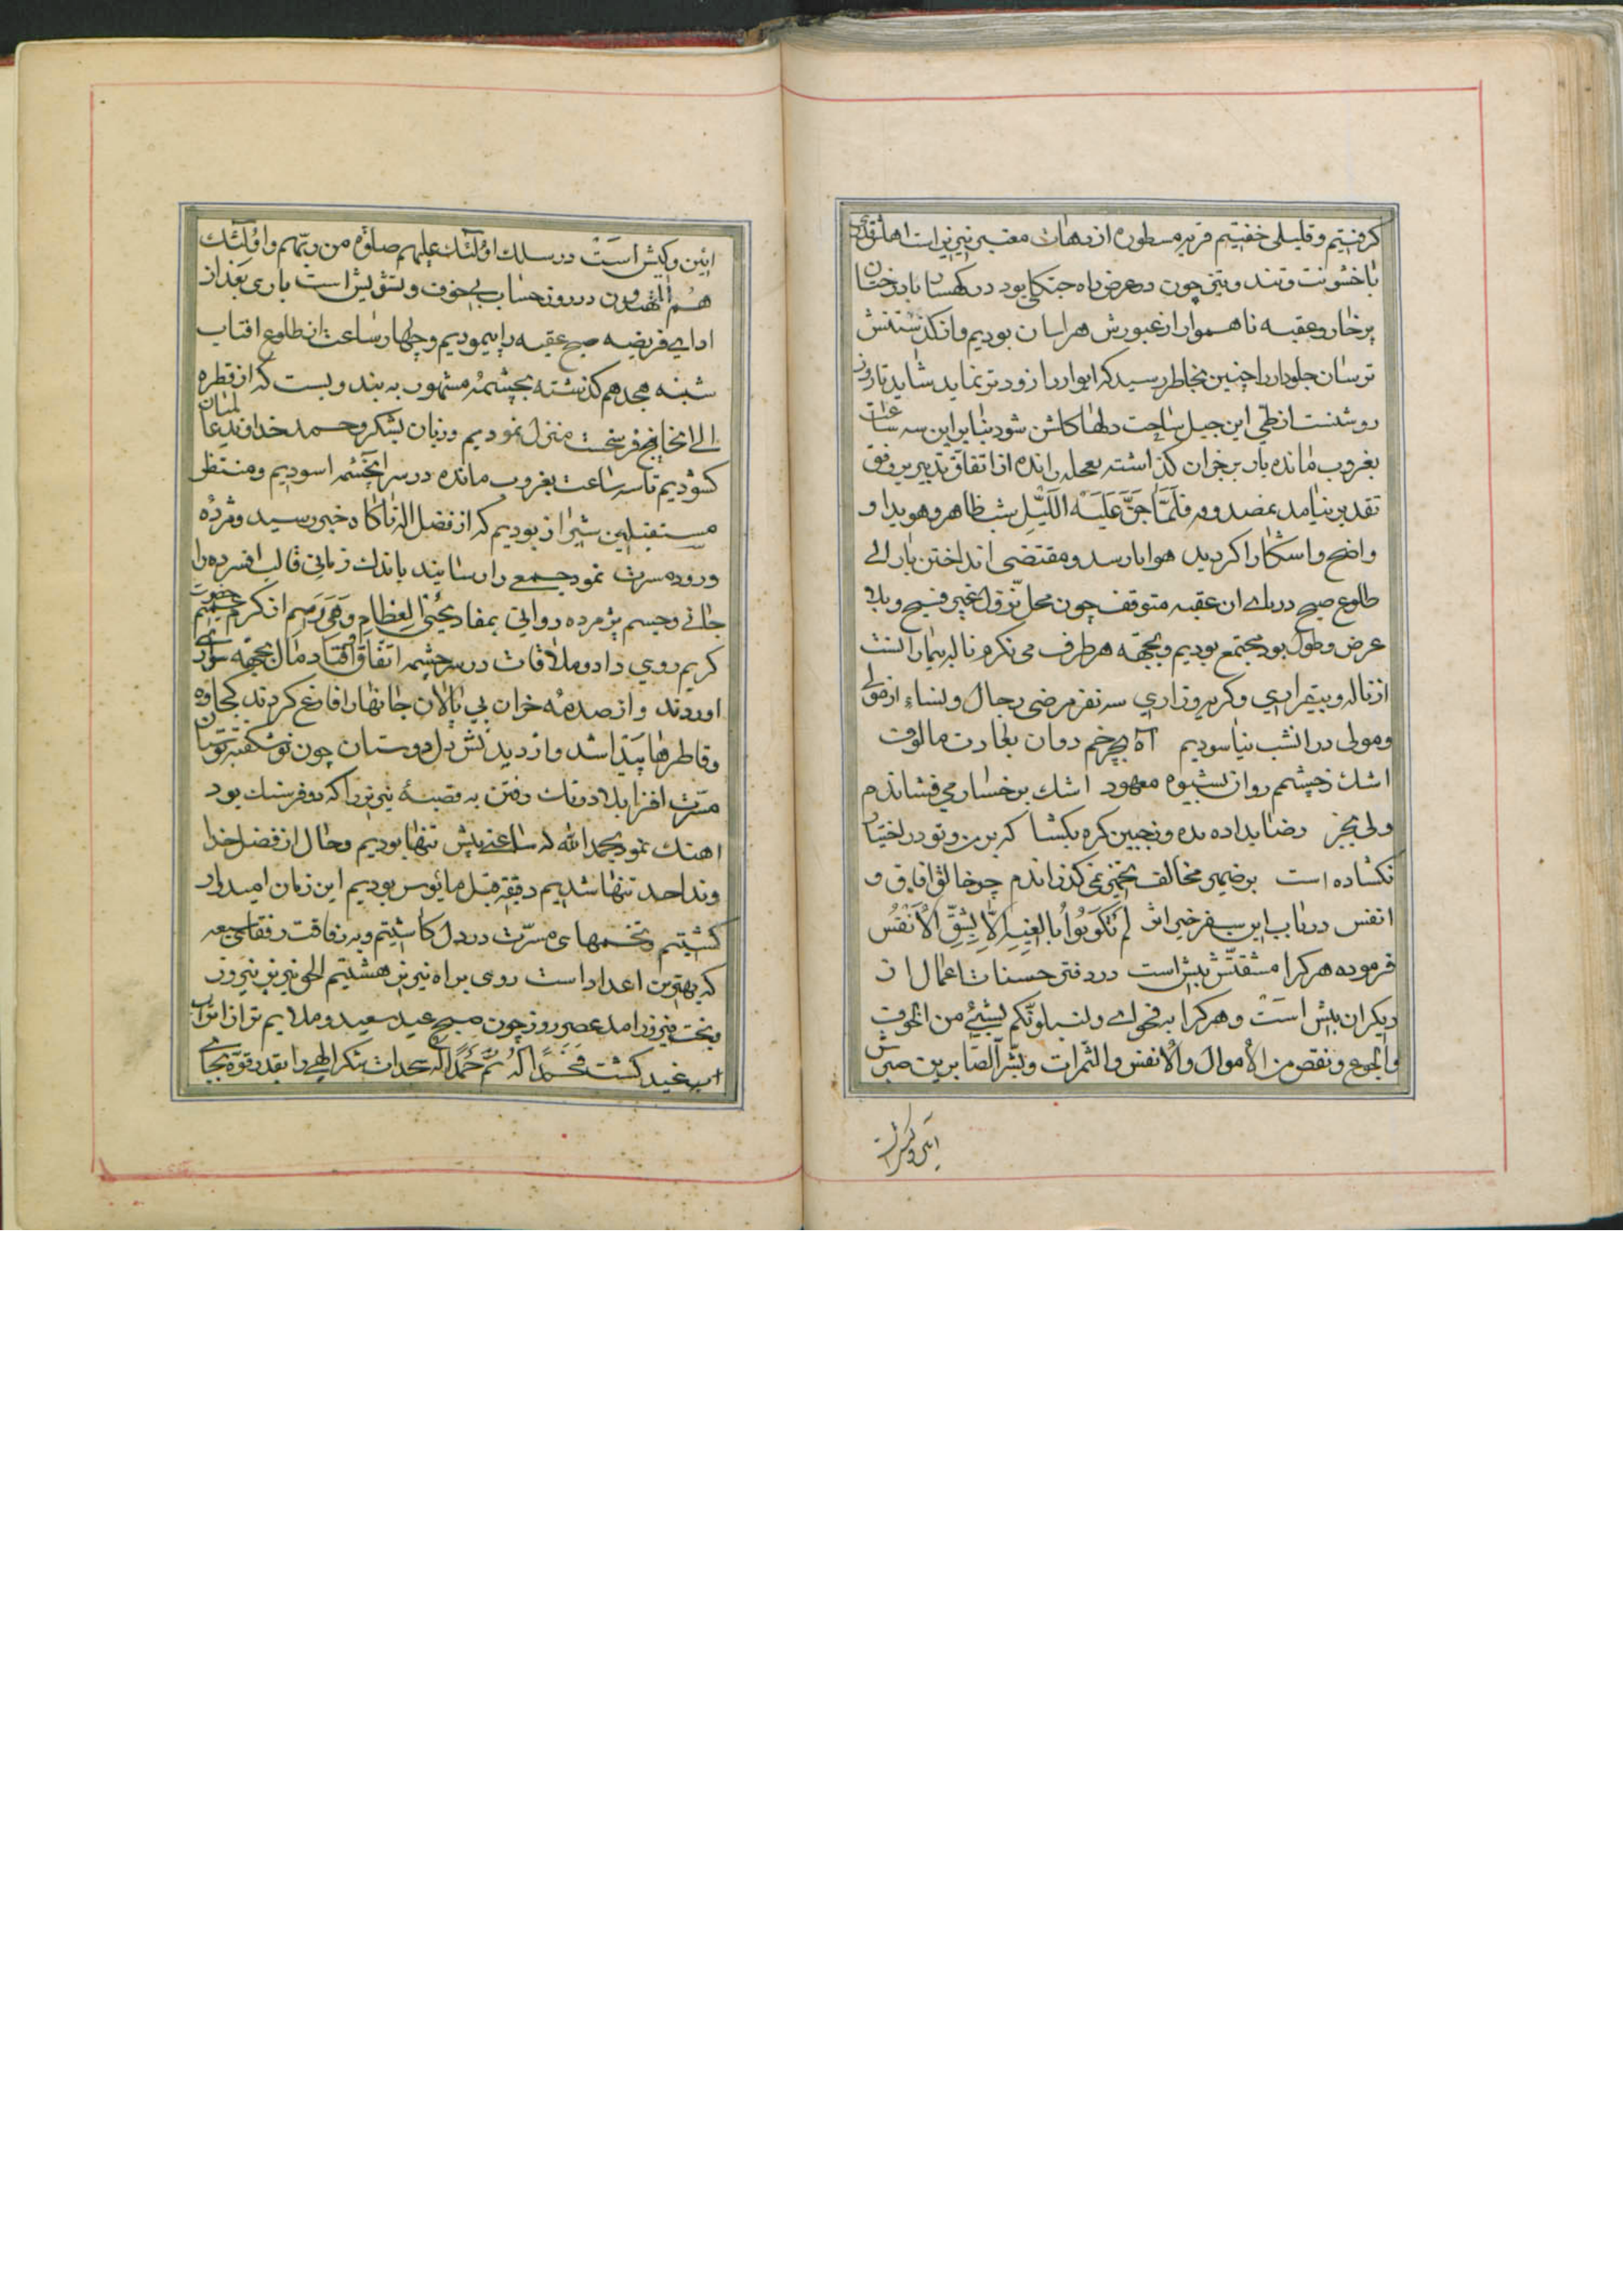 گرفتیم و قلیلی خفتیم قریه مسطوره از دهات معتبر نیریز است اهلش قدری
با خشونت و تند و تیز چون در عرض راه جنگلی بود در کهسار با درختان
پر خار و عقبه ناهموار از عبورش هراسان بودیم و از گذشتنش
ترسان جلودار را چنین بخاطر رسید که ایوار را زودتر نماید شاید تا روز
روشنست از طی این جبل ساحت دلها گلشن شود بنابراین سه ساعت
بغروب مانده بار بر خران گذاشته بعجله رانده از اتفاق تدبیر بر وفق
تقدیر نیامد بمضدوقه فلمّا جنّ علیه اللّیل شب ظاهر و هویدا و
واضح و اشکارا گردید هوا بارسد و مقتضی انداختن بار الی
طلوع صبح در پای ان عقبه متوقف چون محل نزول غیر فسیح و بلا
عرض و طول بود مجتمع بودیم و بجهه هر طرف می نکرم ناله بیمارانست
از ناله و بیقراری و گریه و زاری سه نفر مرضی رجال و نساء از مولی
ومولی در انشب نیاسودیم آه بچرخم دوان بعادت مالوف
اشک زچشمم روان بشیوه معهود اشک برخسار می فشاندم
ولی بجز رضا بداده بده وزجبین گره بگشا که بر من و تو در اختیار
نگشاده است بر ضمیر مخالف نمی گذراندم چو خالق افاق و
انفس در باب این سفر خیر اثر لم تکونوا بالغیه الاّ بشقّ الأنفس
فرموده هر کرا مشقتش بیش است در دفتر حسنات اعمال از
دیگران بیش است و هر کرا به فحوای ولنبلونّکم بشیئ من الخوف
والجوع و نقص من الأموال والأنفس والثّمرات وبشّر الصّابرین صبرش
ائین و کیش است
ائین و کیش است در سلک اولئک علیهم صلوة من ربّهم و اولئک
هم المهتدون در روز حساب بی خوف و تشویش است باری بعد از
ادای فریضه صبح عقبه را پیمودیم و چهار ساعت از طلوع افتاب
شنبه هجدهم گذشته بچشمه مشهور به بند و بست که از قطره
الی انجا پنج فرسخست منزل نمودیم و زبان بشکر و حمد خداوند عالمیان
گشودیم تا سه ساعت بغروب مانده در سر انچشمه اسودیم و منتظر
مستقبلین شیراز بودیم که از فضل اله ناگاه خبر رسید و مژده
ورود مسرت نمود جمعی را رسانید باندک زمانی قالب افسرده را
جانی و جسم پژمرده روانی بمفاد یحیی العظام وهی رمیم از کرم حضرت
کریم روی داد و ملاقات در سر چشمه اتفاق افتاد مال بجهه سواری
اوردند و از صدمه خران بی پالان جانها را فارغ کردند کجاوه
وقاطرها پیدا شد و از دیدنش دل دوستان چون نوشکفته بوستان
مسرت افزا بلا درنگ رفتن به قصبه نیریز را که دو فرسنک بود
اهنگ نمود بحمد الله که ساعتی پیش تنها بودیم وحال از فضل خدا
وند احد تنها شدیم دقیقه قبل مأیوس بودیم این زمان امیدوار
گشتیم وتخمهای مسرّت در دل کاشتیم و به رفاقت رفقای سبعه
که بهترین اعداد است روی براه نیریز هشتیم الحق نیریز نیروز
وبخت فیروز امد عصر روز چون صبح عید سعید وملایم تر از اتراب
گشت فحمداً له ثم حمداً له سجدات شکر الهی را بقدر قوه بجای